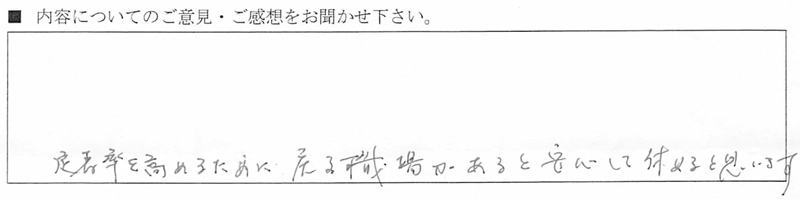 ■ 内容についてのご意見・ご感想をお聞かせ下さい。
定着率を高めるために戻る職場があると安心して休めると思います